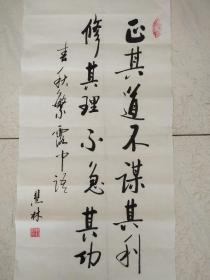 正其道不谋其利
修其理不急其功
春秋繁露中语
慧林